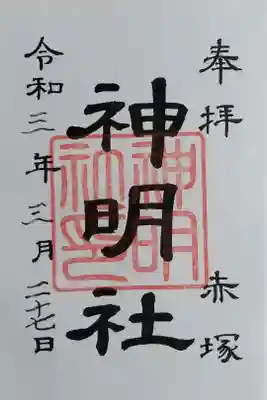 奉拝 赤塚
神明社
神明社印
令和三年三月二十七日